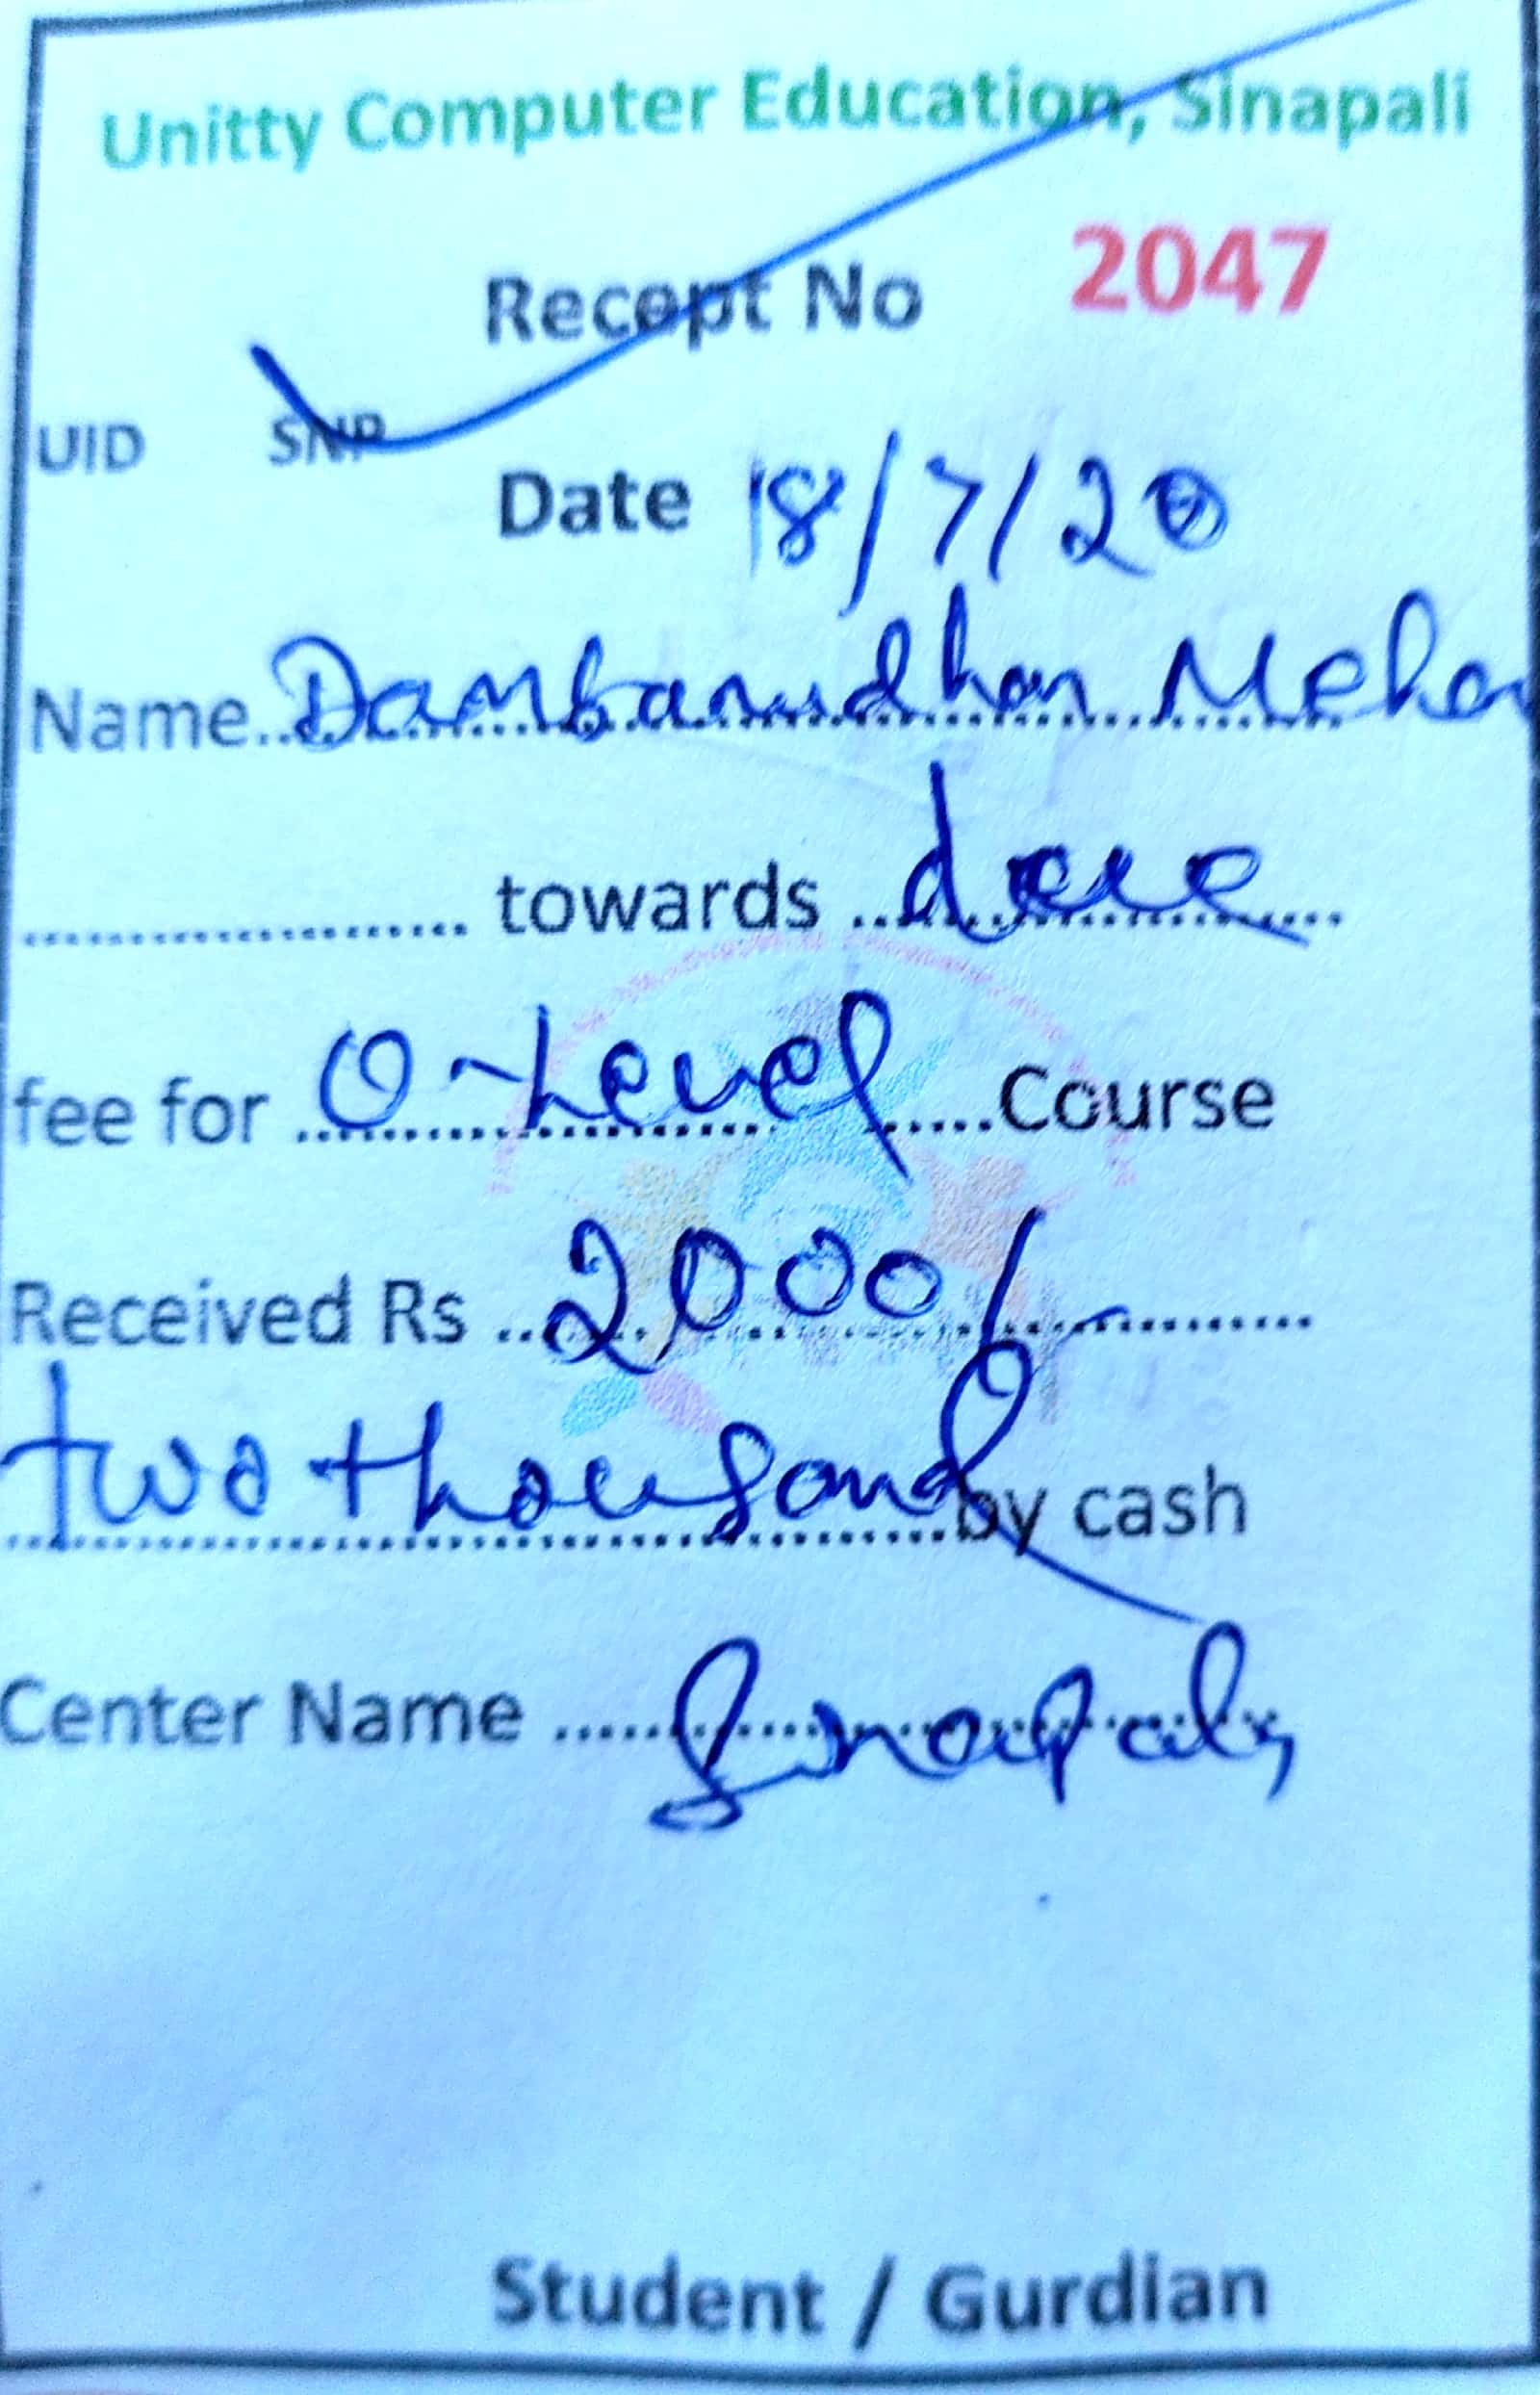 Unitty Computer Education, Sinapali
Recept No 2047
UID SNP
Date 18/7/20
Name Dambarudhar Meher
towards due
fee for O-Level Course
Received Rs 2000/-
two thousand by cash
Center Name Sinapali
Student / Gurdian